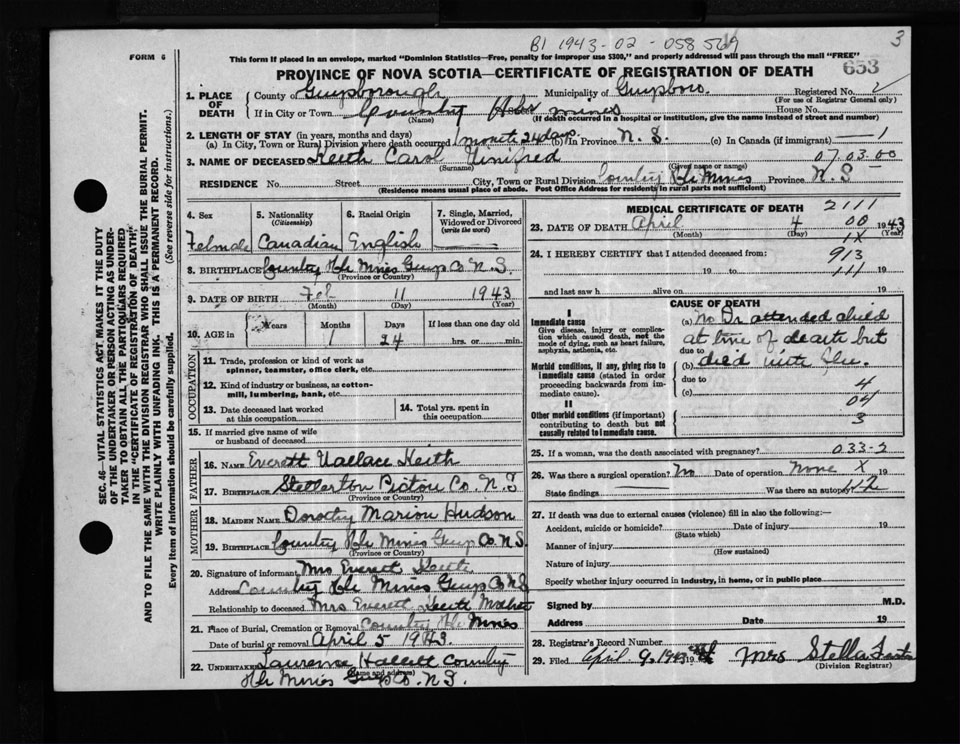 B1 1943-02-058569
3
FORM 6
This form if placed in an envelope, marked "Dominion Statistics—Free, penalty for improper use $300," and properly addressed will pass through the mail "FREE"
PROVINCE OF NOVA SCOTIA—CERTIFICATE OF REGISTRATION OF DEATH
653
SEC. 46—VITAL STATISTICS ACT, MAKES IT THE DUTY
OF THE UNDERTAKER OR PERSON ACTING AS UNDER-
TAKER TO OBTAIN ALL THE PARTICULARS REQUIRED
IN THE "CERTIFICATE OF REGISTRATION OF DEATH,"
AND TO FILE THE SAME WITH THE DIVISION REGISTRAR WHO SHALL ISSUE THE BURIAL PERMIT.
WRITE PLAINLY WITH UNFADING INK. THIS IS A PERMANENT RECORD.
Every item of information should be carefully supplied. (See reverse side for instructions.)
1. PLACE OF DEATH
County of Guysborough Municipality of Guysboro. Registered No. 2
(For use of Registrar General only)
If in City or Town Country Hbr mines House No.
(Name) (If death occurred in a hospital or institution, give the name instead of street and number)
2. LENGTH OF STAY (in years, months and days)
(a) In City, Town or Rural Division where death occurred 1 month 24 days (b) In Province N. S. (c) In Canada (if immigrant) — 1
3. NAME OF DECEASED Keith Carol Unifred
(Surname) (Given name or names)
07.03.00
RESIDENCE No. Street City, Town or Rural Division Country Hbr Mines Province N. S
(Residence means usual place of abode. Post Office Address for residents in rural parts not sufficient)
4. Sex
Female
5. Nationality (Citizenship)
Canadian
6. Racial Origin
English
7. Single, Married, Widowed or Divorced (write the word)
8. BIRTHPLACE Country Hbr Mines Guys Co N.S.
(Province or Country)
9. DATE OF BIRTH Feb 11 1943
(Month) (Day) (Year)
10. AGE in Years Months 1 Days 24 If less than one day old hrs. or min.
OCCUPATION
11. Trade, profession or kind of work as spinner, teamster, office clerk, etc.
12. Kind of industry or business, as cotton-mill, lumbering, bank, etc.
13. Date deceased last worked at this occupation
14. Total yrs. spent in this occupation
15. If married give name of wife or husband of deceased
FATHER
16. NAME Everett Wallace Keith
17. BIRTHPLACE Stellerton Pictou Co. N. S
(Province or Country)
MOTHER
18. MAIDEN NAME Dorothy Marion Hudson
19. BIRTHPLACE Country Hbr Mines Guys Co N.S.
(Province or Country)
20. Signature of informant Mrs Everett Keith
Address Country Hbr Mines Guys Co N S
Relationship to deceased Mrs Everett Keith Mother
21. Place of Burial, Cremation or Removal Country Hbr Mines
Date of burial or removal April 5 1943
22. UNDERTAKER Laurence Hallett Country
(Name and address)
Hbr Mines Guys Co. N. S.
MEDICAL CERTIFICATE OF DEATH 2111
23. DATE OF DEATH April 4 1943
(Month) (Day) (Year)
00
1X
24. I HEREBY CERTIFY that I attended deceased from:
913
19 to 111 19
and last saw h alive on 19
CAUSE OF DEATH
I
Immediate cause
Give disease, injury or complication which caused death, not the mode of dying, such as heart failure, asphyxia, asthenia, etc.
Morbid conditions, if any, giving rise to immediate cause (stated in order proceeding backwards from immediate cause).
II
Other morbid conditions (if important) contributing to death but not causally related to immediate cause.
(a) No Dr attended child
at time of death but
due to
(b) died with Flu.
due to 4
(c) 04
3
25. If a woman, was the death associated with pregnancy? 033-2
26. Was there a surgical operation? No Date of operation None X 19
State findings Was there an autopsy? 112
27. If death was due to external causes (violence) fill in also the following:—
Accident, suicide or homicide? Date of injury 19
(State which)
Manner of injury
(How sustained)
Nature of injury
Specify whether injury occurred in industry, in home, or in public place
Signed by M.D.
Address Date 19
28. Registrar's Record Number
29. Filed April 9, 1943 19 Mrs Stella
(Division Registrar)